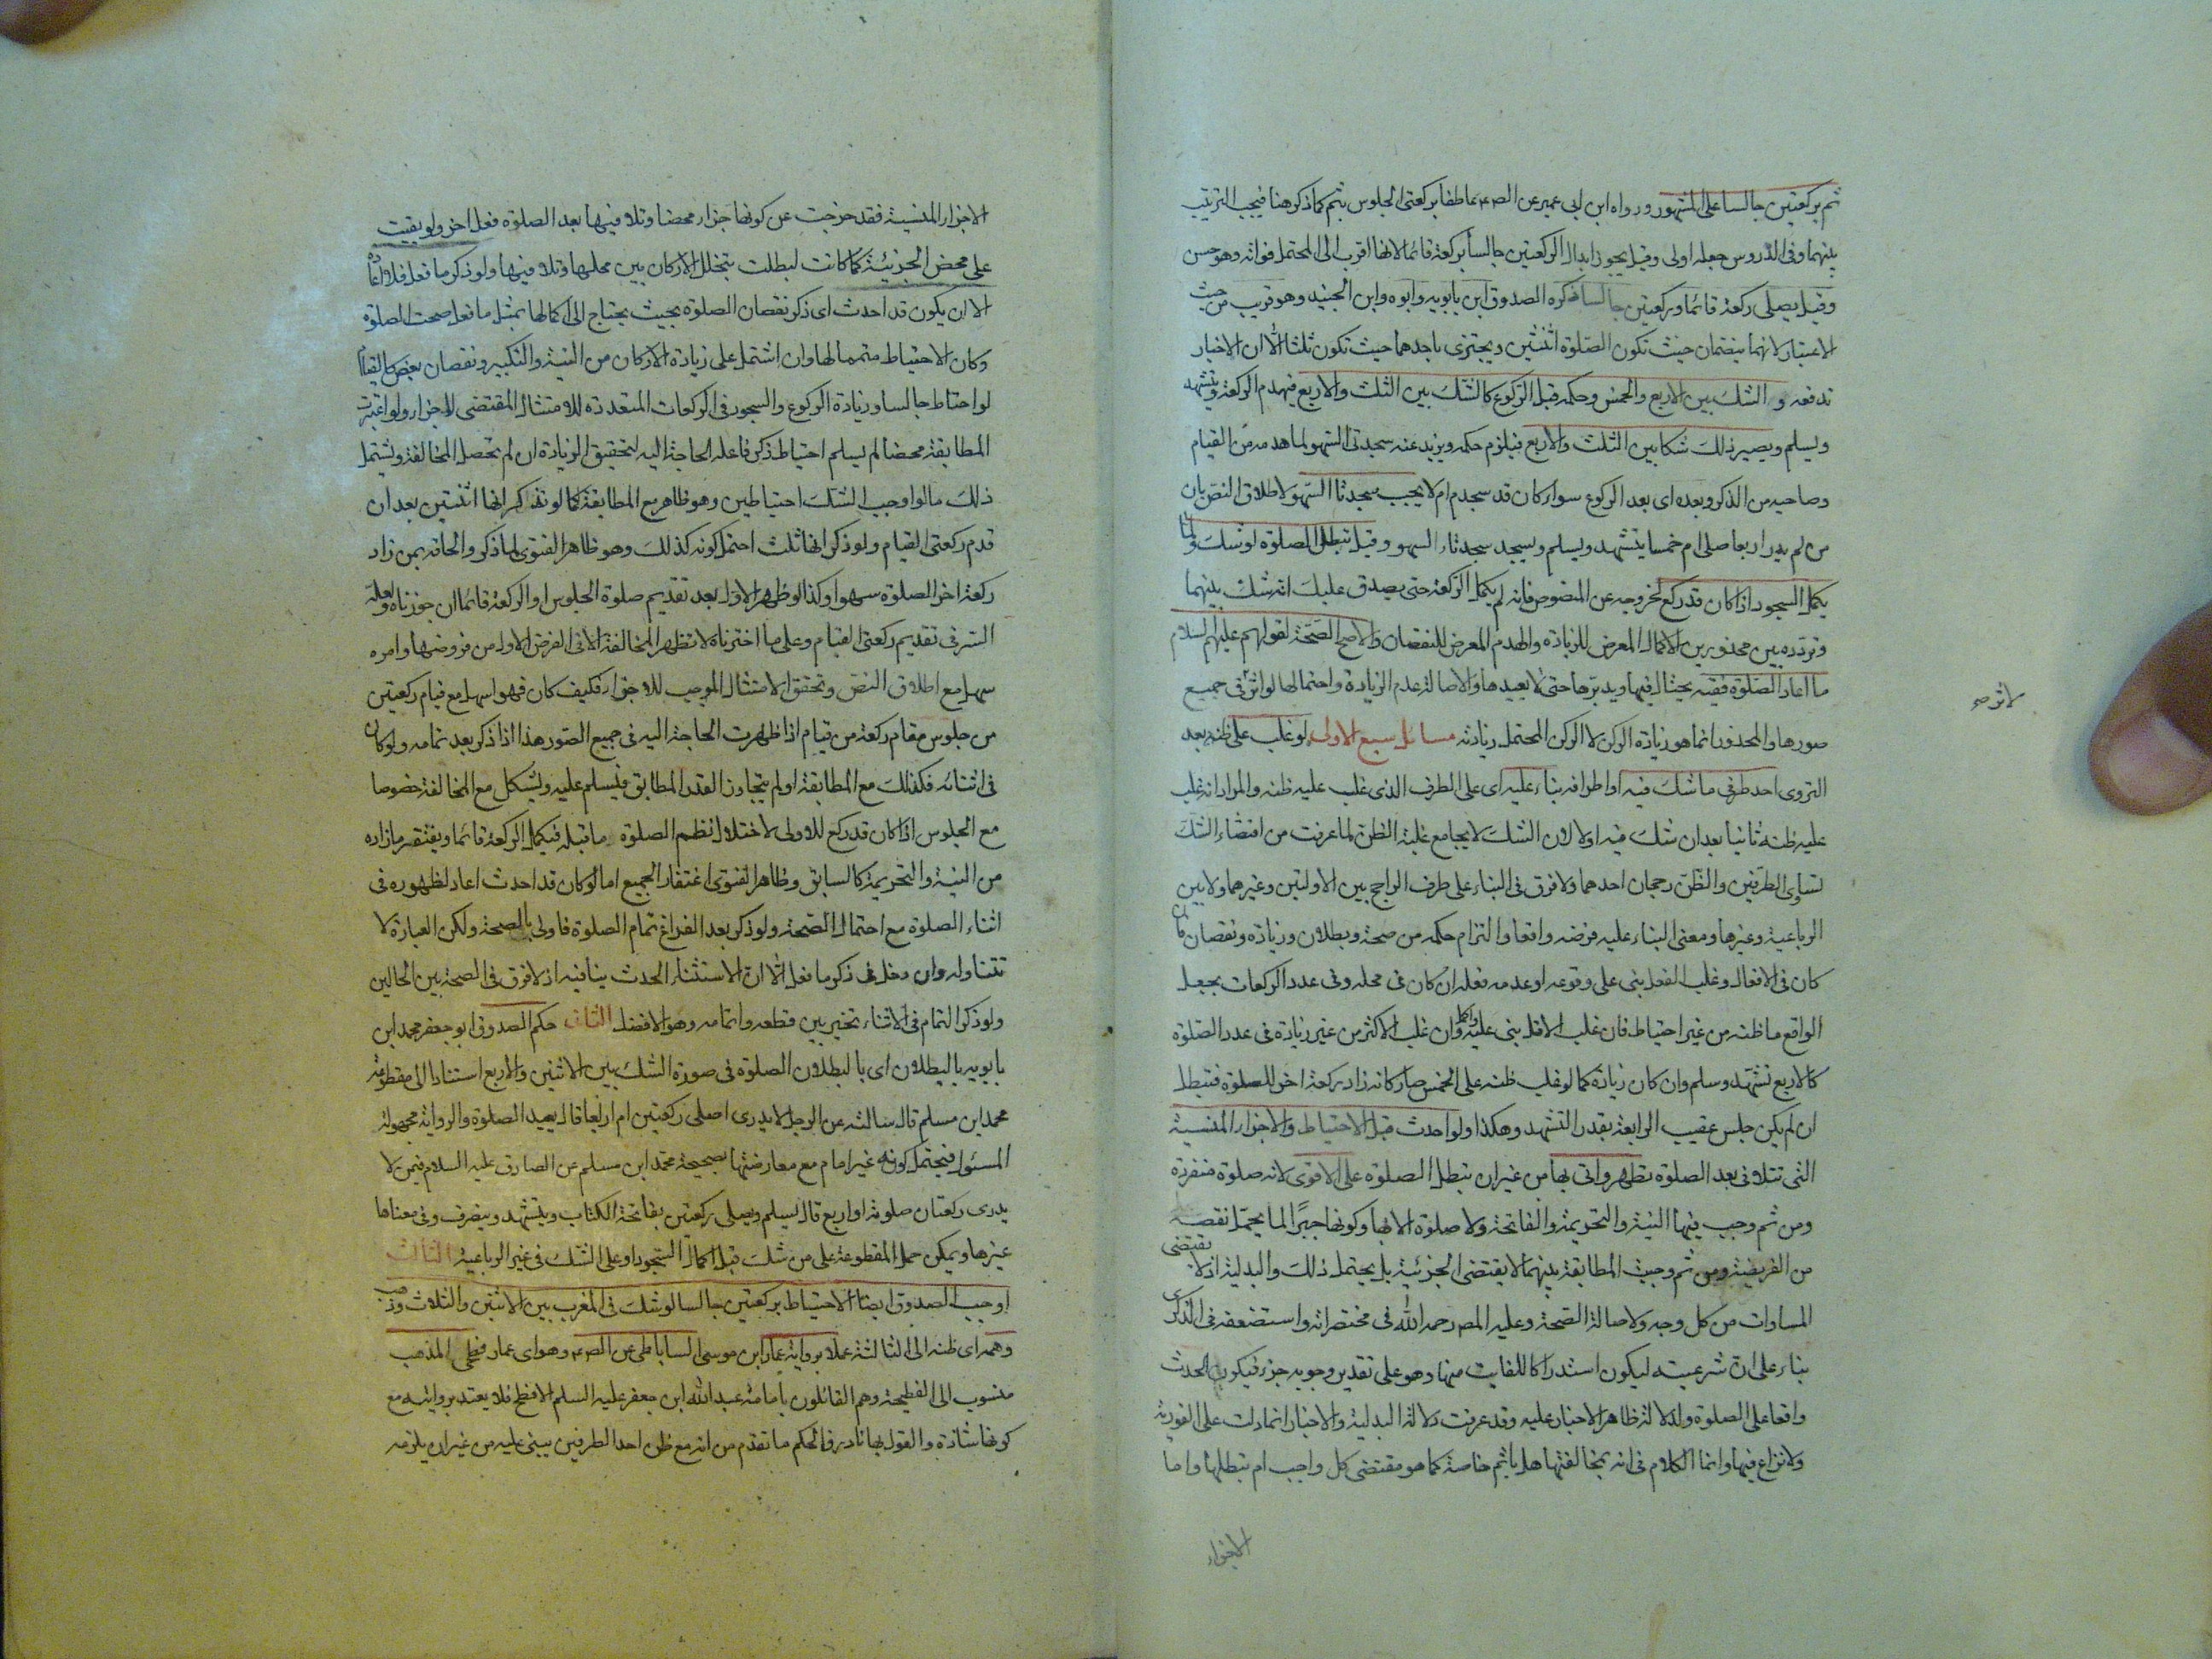 ثم بركعتين جالسا على المشهور ورواه ابن ابى عمير عن الص ع عاطفا بركعتى الجلوس بثم كما ذكر هنا فيجب الترتيب
بينهما وفى الدروس جعله اولى وقيل يجوز ابدال الركعتين جالسا بركعة قائما لانها اقرب الى المحتمل فواته وهو حسن
وقيل يصلى ركعة قائما وركعتين جالسا ذكره الصدوق ابن بابويه وابوه وابن الجنيد وهو قريب من حيث
الاعتبار لانهما ينضمان حيث تكون الصلوة اثنتين ويجتزى باحدهما حيث تكون ثلثا الا ان الاخبار
تدفعه و الشك بين الاربع والخمس وحكمه قبل الركوع كالشك بين الثلث والاربع فيهدم الركعة ويتشهد
ويسلم ويصير ذلك شكا بين الثلث والاربع فيلزم حكمه ويزيد عنه سجدتى السهو لما هدمه من القيام
وصاحبه من الذكر وبعده اى بعد الركوع سواء كان قد سجد ام لا يجب سجدتا السهو لاطلاق النص بان
من لم يدر اربعا صلى ام خمسا يتشهد ويسلم ويسجد سجدتا السهو وقيل تبطل الصلوة لو شك ولما
يكمل السجود اذا كان قد ركع لخروجه عن المنصوص فانه لم يكمل الركعة حتى يصدق عليك انه شك بينهما
وتردده بين محذورين الاكمال المعرض للزيادة والهدم المعرض للنقصان والاصح الصحة لقولهم عليهم السلام
ما اعاد الصلوة فقيه يحتال فيها ويدبرها حتى لا يعيدها والاصالة عدم الزيادة واحتمالها لو اثر فى جميع
لاثر صح
صورها والمحذور انما هو زيادة الركن لا الركن المحتمل زيادته مسائل سبع الاولى لو غلب على ظنه بعد
التروى احد طرفى ما شك فيه او اطرافه بناء عليه اى على الطرف الذى غلب عليه ظنه والمراد انه غلب
عليه ظنه ثانيا بعد ان شك فيه اولا لان الشك لا يجامع غلبة الظن لما عرفت من اقتضاء الشك
تساوى الطرفين والظن رجحان احدهما ولا فرق فى البناء على طرف الراجح بين الاولتين وغيرهما ولا بين
الرباعية وغيرها ومعنى البناء عليه فرضه واقعا والتزام حكمه من صحة وبطلان وزيادة ونقصان فان
كان فى الافعال وغلب الفعل بنى على وقوعه او عدمه فعله ان كان فى محله وفى عدد الركعات يجعل
الواقع ما ظنه من غير احتياط فان غلب الاقل بنى عليه واكمل وان غلب الاكثر من غير زيادة فى عدد الصلوة
كالاربع تشهد وسلم وان كان زيادة كما لو غلب ظنه على الخمس صار كانه زاد ركعة اخر الصلوة فتبطل
ان لم يكن جلس عقيب الرابعة بقدر التشهد وهكذا ولو احدث قبل الاحتياط والاجزاء المنسية
التى تتلافى بعد الصلوة تطهر واتى بها من غير ان تبطل الصلوة على الاقوى لانه صلوة منفردة
ومن ثم وجب فيها النية والتحريمة والفاتحة ولا صلوة الا بها وكونها جبرا لما يحتمل نقصه
من الفريضة ومن ثم وجبت المطابقة بينهما لا يقتضى الجزئية بل يحتمل ذلك والبدلية اذ لا يقتضى
المساوات من كل وجه ولاصالة الصحة وعليه المص رحمه الله فى مختصراته واستضعفه فى الذكرى
بناء على ان شرعيته ليكون استدراكا للفايت منها وهو على تقدير وجوبه جزء فيكون الحدث
واقعا على الصلوة ولدلالة ظاهر الاخبار عليه وقد عرفت دلالة البدلية والاخبار انما دلت على الفورية
ولا نزاع فيها وانما الكلام فى انه بمخالفتها هل ياثم خاصة كما هو مقتضى كل واجب ام تبطلها واما
الاجزاء
الاجزاء المنسية فقد خرجت عن كونها جزاء محضا وتلافيها بعد الصلوة فعل اخر ولو بقيت
على محض الجزئية كما كانت لبطلت بتخلل الاركان بين محلها وتلافيها ولو ذكر ما فعل فلا اعادة
الا ان يكون قد احدث اى ذكر نقصان الصلوة بحيث يحتاج الى اكمالها بمثل ما فعل صحت الصلوة
وكان الاحتياط متمما لها وان اشتمل على زيادة الاركان من النية والتكبير ونقصان بعض كالقيام
لو احتاط جالسا وزيادة الركوع والسجود فى الركعات المتعددة للامتثال المقتضى للاجزاء ولو اعتبرت
المطابقة محضا لم يسلم احتياط ذكر فاعله الحاجة اليه لتحقيق الزيادة ان لم تحصل المخالفة ويشتمل
ذلك ما لو اوجب الشك احتياطين وهو ظاهر مع المطابقة كما لو تذكر انها اثنتين بعد ان
قدم ركعتى القيام ولو ذكر انها ثلث احتمل كونه كذلك وهو ظاهر الفتوى لما ذكر والحاقه بمن زاد
ركعة اخر الصلوة سهوا وكذا لو ظهر الاول بعد تقديم صلوة الجلوس او الركعة قائما ان جوزناه ولعله
السر فى تقديم ركعتى القيام وعلى ما اخترناه لا تظهر المخالفة الا فى الفرض الاول من فروضها وامره
سهل مع اطلاق النص وتحقق الامتثال الموجب للاجزاء فكيف كان فهو اسهل مع قيام ركعتين
من جلوس مقام ركعة من قيام اذا ظهرت الحاجة اليه فى جميع الصور هذا اذا ذكر بعد تمامه ولو كان
فى اثنائه فكذلك مع المطابقة او لم يتجاوز القدر المطابق فيسلم عليه ويشكل مع المخالفة خصوصا
مع الجلوس اذا كان قد ركع للاولى لاختلال نظم الصلوة ما قبله فيكمل الركعة قائما ويغتفر ما زاده
من النية والتحريمة كالسابق وظاهر الفتوى اغتفار الجميع اما لو كان قد احدث اعاد لظهوره فى
اثناء الصلوة مع احتمال الصحة ولو ذكر بعد الفراغ تمام الصلوة فاولى بالصحة ولكن العبارة لا
تتناوله وان دخل فى ذكر ما فعل الا ان الاستثناء الحدث ينافيه اذ لا فرق فى الصحة بين الحالين
ولو ذكر التمام فى الاثناء تخير بين قطعه واتمامه وهو الافضل الثانى حكم الصدوق ابو جعفر محمد ابن
بابويه بالبطلان اى بالبطلان الصلوة فى صورة الشك بين الاثنين والاربع استنادا الى مقطوعة
محمد ابن مسلم قال سالته عن الرجل لا يدرى اصلى ركعتين ام اربعا قال يعيد الصلوة والرواية مجهولة
المسئول فيحتمل كونه غير امام مع معارضتها بصحيحة محمد ابن مسلم عن الصادق عليه السلام فيمن لا
يدرى ركعتان صلوته او اربع قال يسلم ويصلى ركعتين بفاتحة الكتاب ويتشهد وينصرف وفى معناها
غيرها ويمكن حمل المقطوعة على من شك قبل اكمال السجود او على الشك فى غير الرباعية الثالث
اوجب الصدوق ايضا الاحتياط بركعتين جالسا لو شك فى المغرب بين الاثنين والثلاث وذهب
وهمه اى ظنه الى الثالثة عملا برواية عمار ابن موسى الساباطى عن الص ع وهو اى عمار فطحى المذهب
منسوب الى الفطيحة وهم القائلون بامامة عبد الله ابن جعفر عليه السلم الافطح فلا يعتد بروايته مع
كونها شاذة والقول بها نادر والحكم ما تقدم من انه مع ظن احد الطرفين يبنى عليه من غير ان يلزمه